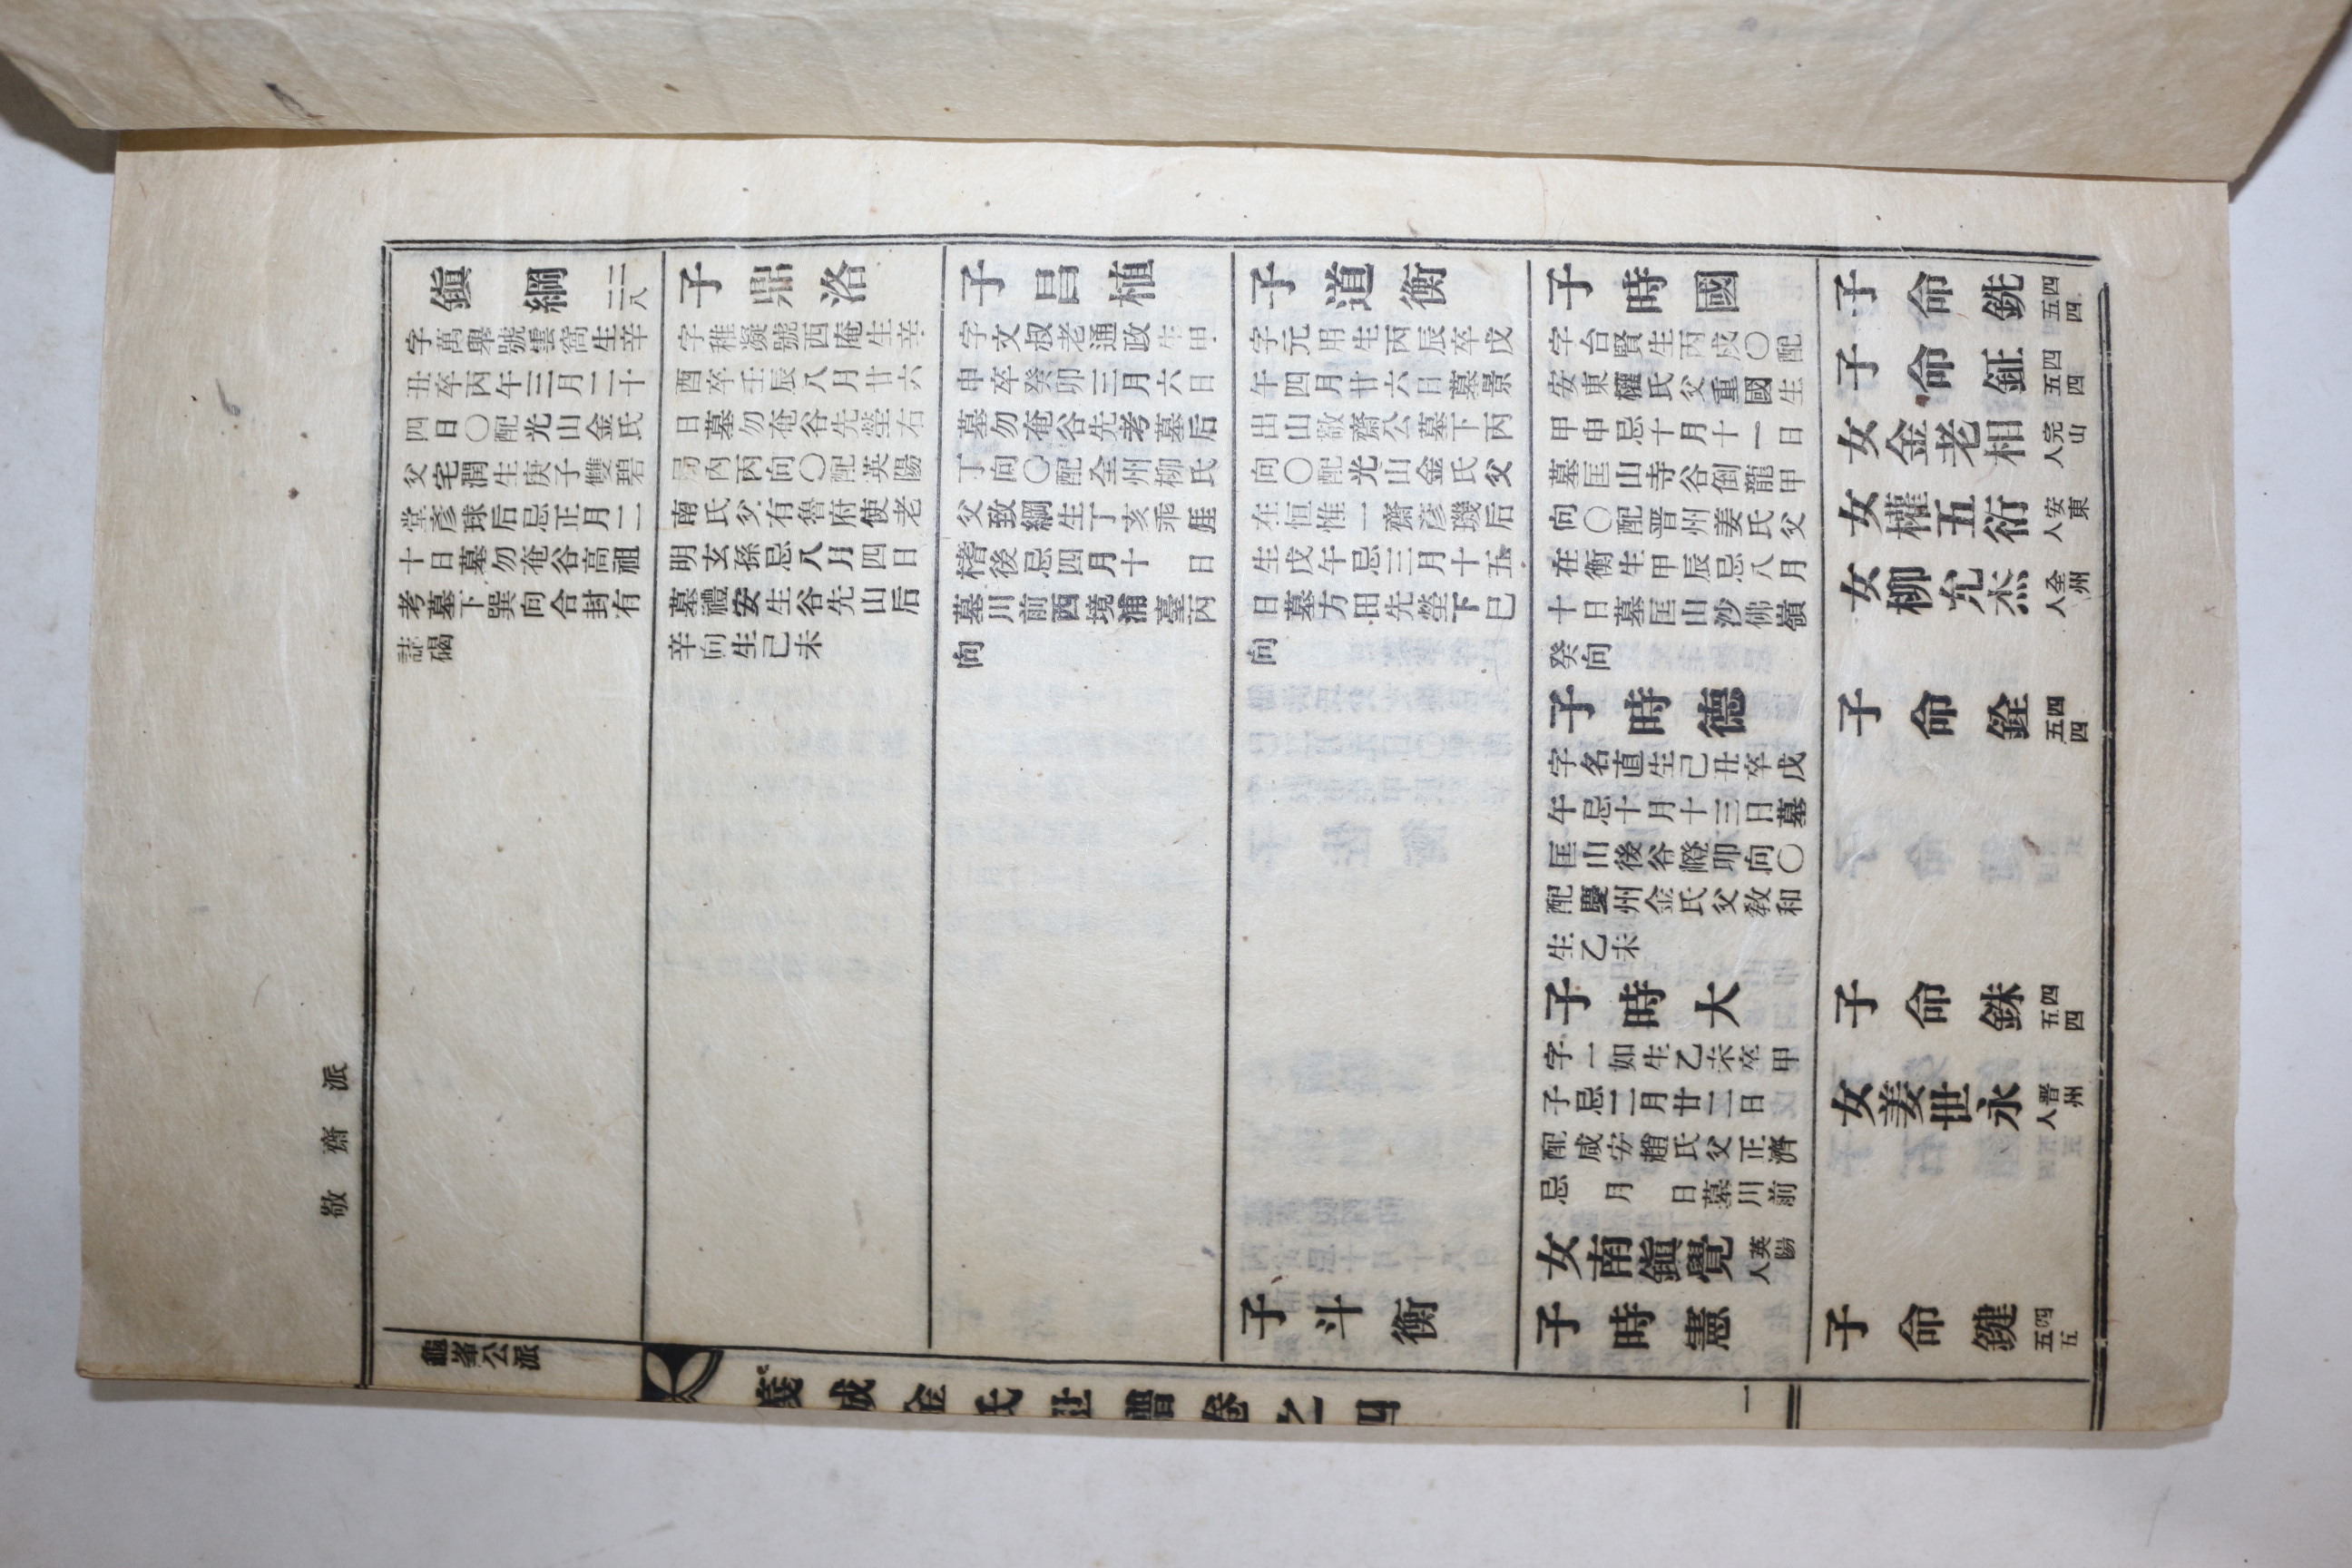 敬齋派
鎭綱 二二八
字萬擧號雲窩生辛
丑卒丙午三月二十
四日〇配光山金氏
父宅潤生庚子雙碧
堂彥球后忌正月二
十日墓勿奄谷高祖
考墓下巽向合封有
誌碣
子鼎洛
字稚凝號西庵生辛
酉卒壬辰八月廿六
日墓勿奄谷先塋右
局內丙向〇配英陽
南氏父有魯府使老
明玄孫忌八月四日
墓禮安生谷先山后
辛向生己未
子昌植
字文叔老通政生甲
申卒癸卯三月六日
墓勿奄谷先考墓后
丁向〇配全州柳氏
父致綱生丁亥乖厓
榰後忌四月十 日
墓川前西境浦臺丙
向
子道衡
字元用生丙辰卒戊
午四月廿六日墓景
出山敬齋公墓下丙
向〇配光山金氏父
在恒惟一齋彥璣后
生戊午忌三月十五
日墓方田先塋下巳
向
子斗衡
子時國
字台賢生丙戍〇配
安東權氏父重國生
甲申忌十月十一日
墓匡山寺谷倒龍甲
向〇配晋州姜氏父
在衡生甲辰忌八月
十日墓匡山沙佛嶺
癸向
子時德
字名直生己丑卒戊
午忌十月十三日墓
匡山後谷嶝卯向〇
配慶州金氏父敎和
生乙未
子時大
字一如生乙未卒甲
子忌二月廿二日
配咸安趙氏父正濟
忌 月 日墓川前
女南鎭覺 英陽人
子時憲
子命銑 四五四
子命鉦 四五四
女金老相 完山人
女權五衍 安東人
女柳允杰 全州人
子命銓 四五四
子命銖 四五四
女姜世永 晋州人
子命鍵 四五五
龜峯公派
義城金氏世譜卷之四
一